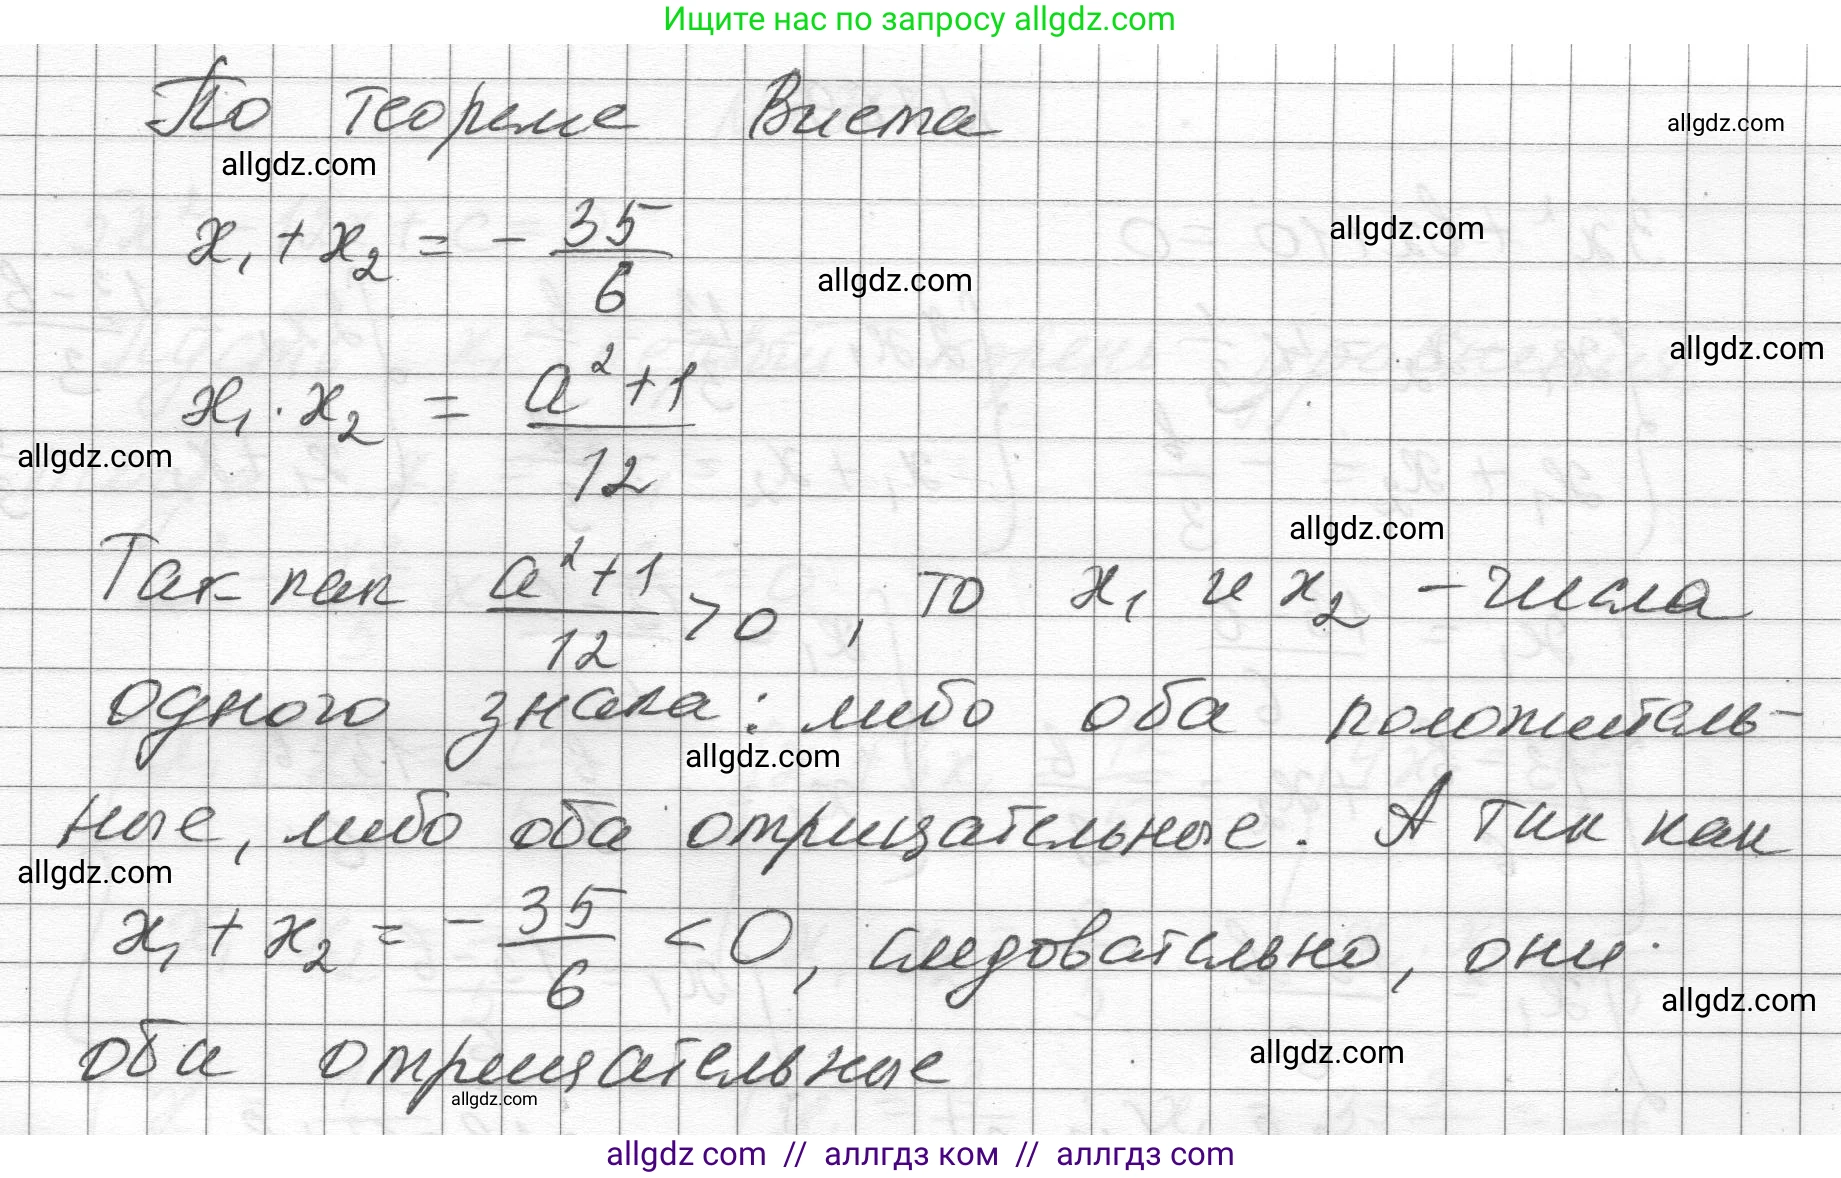 Ищите нас по запросу allgdz.com
По теореме Виета
allgdz.com
allgdz.com
x₁ + x₂ = - 35/6
allgdz.com
allgdz.com
allgdz.com
x₁ · x₂ = (a² + 1)/12
allgdz.com
allgdz.com
Так как (a² + 1)/12 > 0, то x₁ и x₂ - числа
одного знака: либо оба положитель-
allgdz.com
ные, либо оба отрицательные. А так как
allgdz.com
x₁ + x₂ = - 35/6 < 0, следовательно, они
allgdz.com
оба отрицательные
allgdz.com
allgdz.com
allgdz com // аллгдз ком // аллгдз com